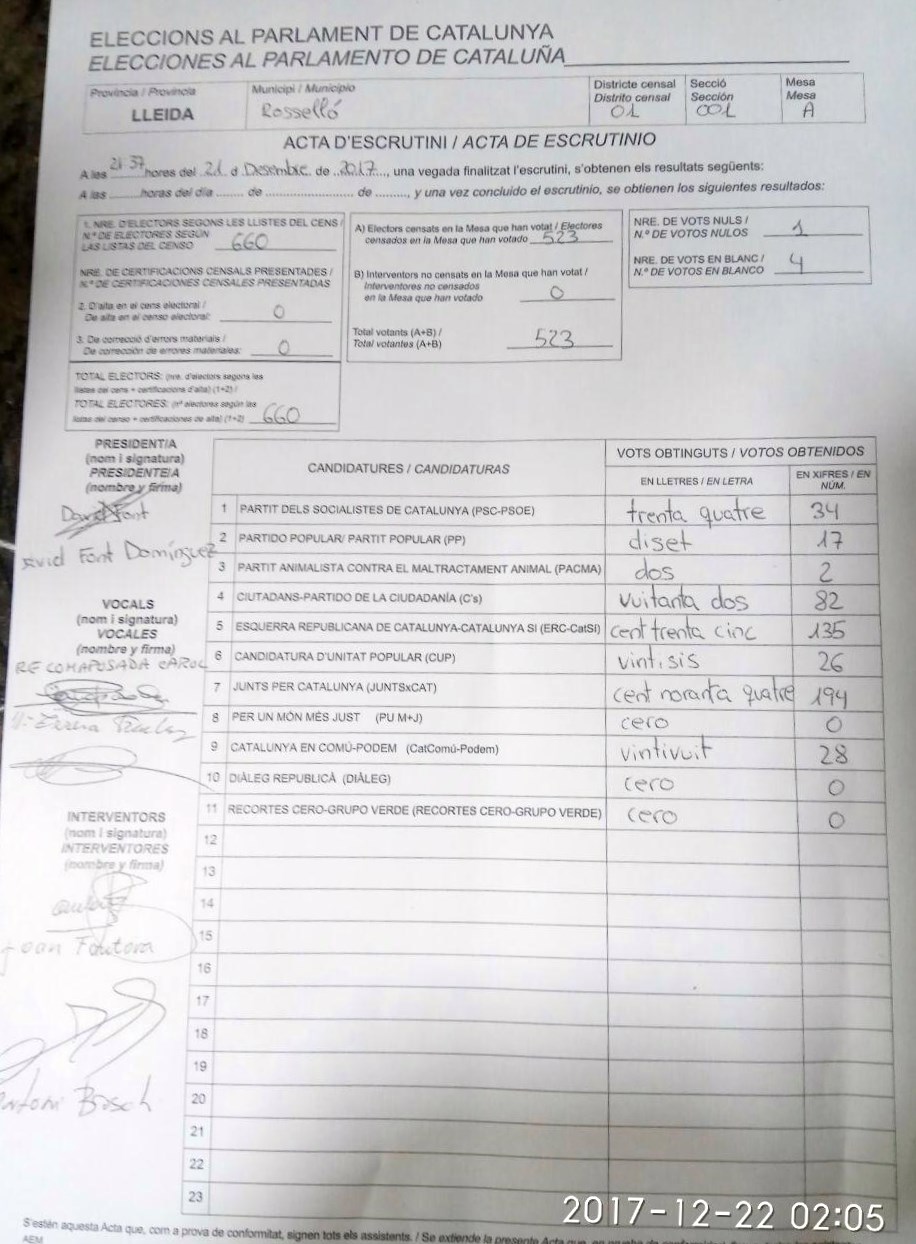 ELECCIONS AL PARLAMENT DE CATALUNYA
ELECCIONES AL PARLAMENTO DE CATALUÑA
Província / Provincia
LLEIDA
Municipi / Municipio
Rosselló
Districte censal
Distrito censal
01
Secció
Sección
001
Mesa
Mesa
A
ACTA D'ESCRUTINI / ACTA DE ESCRUTINIO
A les 21 37 hores del 21 d Desembre de 2017, una vegada finalitzat l'escrutini, s'obtenen els resultats següents:
A las ...... horas del día ....... de ..................... de ........., y una vez concluido el escrutinio, se obtienen los siguientes resultados:
1. NRE. D'ELECTORS SEGONS LES LLISTES DEL CENS /
N.º DE ELECTORES SEGÚN
LAS LISTAS DEL CENSO 660
NRE. DE CERTIFICACIONS CENSALS PRESENTADES /
N.º DE CERTIFICACIONES CENSALES PRESENTADAS
2. D'alta en el cens electoral /
De alta en el censo electoral: 0
3. De correcció d'errors materials /
De corrección de errores materiales: 0
TOTAL ELECTORS: (nre. d'electors segons les
llistes del cens + certificacions d'alta) (1+2) /
TOTAL ELECTORES: (nº electores según las
listas del censo + certificaciones de alta) (1+2) 660
A) Electors censats en la Mesa que han votat / Electores
censados en la Mesa que han votado 523
B) Interventors no censats en la Mesa que han votat /
Interventores no censados
en la Mesa que han votado 0
Total votants (A+B) /
Total votantes (A+B) 523
NRE. DE VOTS NULS /
N.º DE VOTOS NULOS 1
NRE. DE VOTS EN BLANC /
N.º DE VOTOS EN BLANCO 4
PRESIDENT/A
(nom i signatura)
PRESIDENTE/A
(nombre y firma)
David Font
David Font Domínguez
VOCALS
(nom i signatura)
VOCALES
(nombre y firma)
INTERVENTORS
(nom i signatura)
INTERVENTORES
(nombre y firma)
Antoni Bosch
CANDIDATURES / CANDIDATURAS
VOTS OBTINGUTS / VOTOS OBTENIDOS
EN LLETRES / EN LETRA
EN XIFRES / EN NÚM.
1 PARTIT DELS SOCIALISTES DE CATALUNYA (PSC-PSOE) trenta quatre 34
2 PARTIDO POPULAR/ PARTIT POPULAR (PP) diset 17
3 PARTIT ANIMALISTA CONTRA EL MALTRACTAMENT ANIMAL (PACMA) dos 2
4 CIUTADANS-PARTIDO DE LA CIUDADANÍA (C's) vuitanta dos 82
5 ESQUERRA REPUBLICANA DE CATALUNYA-CATALUNYA SÍ (ERC-CatSí) cent trenta cinc 135
6 CANDIDATURA D'UNITAT POPULAR (CUP) vint.i.sis 26
7 JUNTS PER CATALUNYA (JUNTSxCAT) cent noranta quatre 194
8 PER UN MÓN MÉS JUST (PU M+J) cero 0
9 CATALUNYA EN COMÚ-PODEM (CatComú-Podem) vintivuit 28
10 DIÀLEG REPUBLICÀ (DIÀLEG) cero 0
11 RECORTES CERO-GRUPO VERDE (RECORTES CERO-GRUPO VERDE) cero 0
12
13
14
15
16
17
18
19
20
21
22
23
S'estén aquesta Acta que, com a prova de conformitat, signen tots els assistents. / Se extiende la presente Acta que,
AEM
2017-12-22 02:05